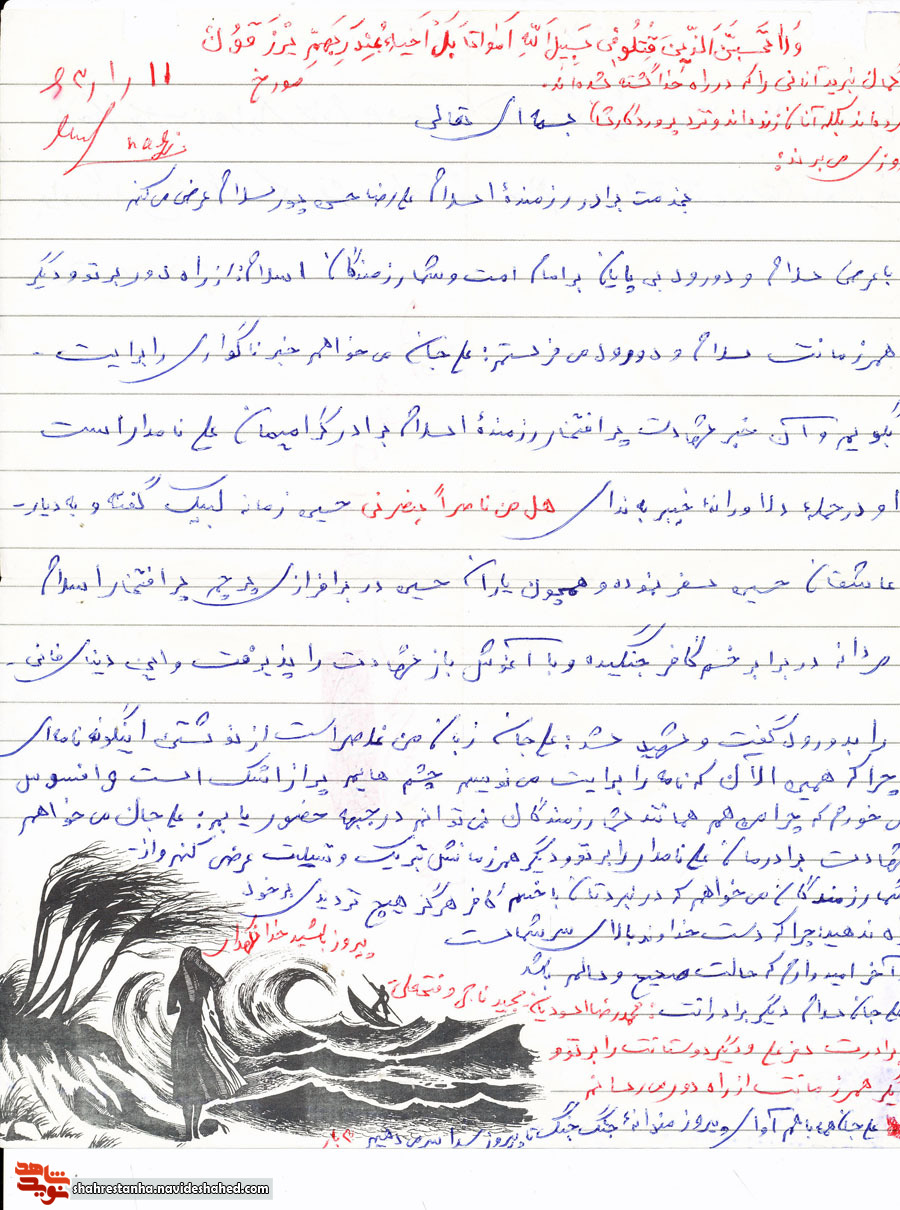 ولا تحسبن الذین قتلوا فی سبیل الله امواتا بل احیاء عند ربهم یرزقون
گمان نبرید آنانی را که در راه خدا کشته شده‌اند
مورخ ۱۱ /۱/
مرده‌اند بلکه آنان زنده‌اند و نزد پروردگارشان
بسمه ای تعالی
روزی می برند
بخدمت برادر رزمندهٔ اسلام علیرضا حسن پور سلام عرض می کنم
با عرض سلام و دورود بی پایان بر امام امت و شما رزمندگان اسلام: از راه دور بر تو و دیگر
همرزمانت سلام و دورود می فرستم: علی جان می خواهم خبر ناگواری را برایت -
بگویم و آن خبر شهادت پر افتخار رزمندهٔ اسلام برادر گرامیمان علی نامدار است
او در حملهٔ دلاورانهٔ خیبر به ندای هل من ناصراً ینصرنی حسین زمانه لبیک گفته و به دیار -
عاشقان حسین سفر نموده و همچون یاران حسین در برافرازی پرچم پر افتخار اسلام
مردانه در برابر خصم کافر جنگیده و با آغوش باز شهادت را پذیرفت و این دنیای فانی -
را بدورود گفت و شهید شد: علی جان زبان من قاصر است از نوشتن اینگونه نامه‌ای
چرا که همین الآن که نامه را برایت می نویسم چشم هایم پر از اشک است و افسوس
می خورم که چرا من هم همانند شما رزمندگان نمی توانم در جبهه حضور یابم: علی جان می خواهم
شهادت برادرمان علی نامدار را بر تو و دیگر همرزمانش تبریک و تسلیت عرض کنم و از -
شما رزمندگان می خواهم که در نبردتان با خصم کافر هرگز هیچ تردیدی بر خود
راه ندهید چرا که دست خداوند بالای سر شماست
پیروز باشید خدا نگهدار
آخر امیدوارم که حالت صحیح و سالم باشد
علی جان سلام دیگر برادرانت: محمدرضا مجید ناجی و فتحعلی
برادرت و دیگر دوستانت را بر تو و
دیگر همرزمانت از راه دور می رسانم
علی جان همه با هم آوای پیروزمندانهٔ جنگ جنگ تا پیروزی سر می دهیم ۳ بار
نوید شاهد
shahrestanha.navideshahed.com